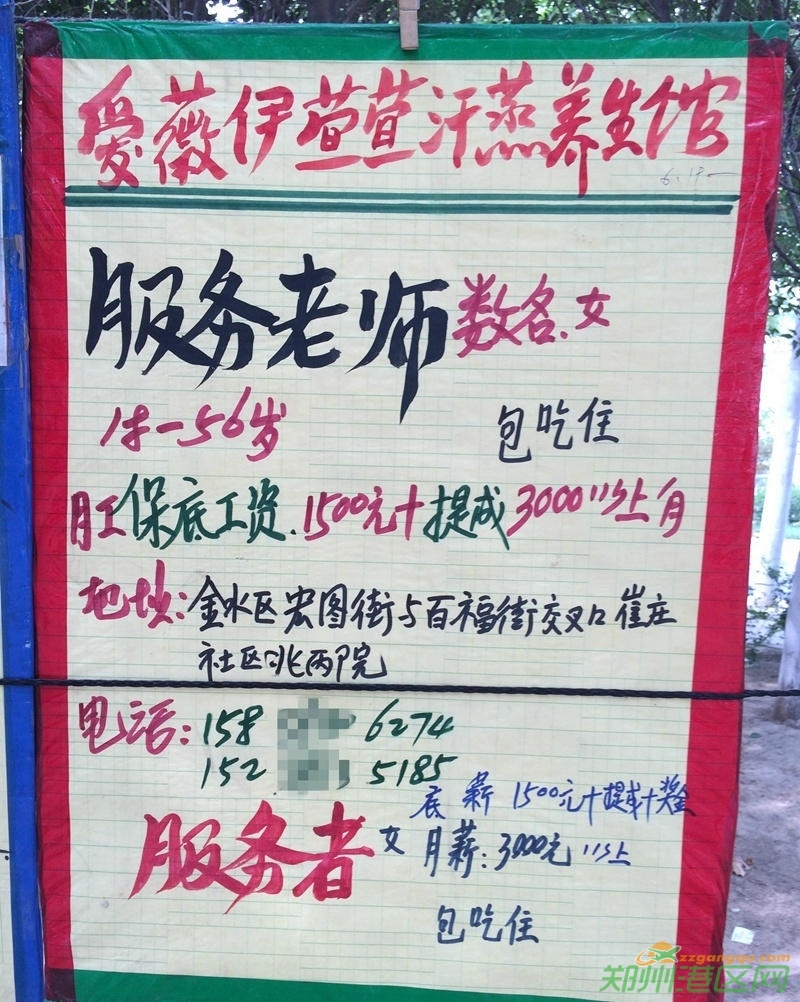 爱薇伊萱萱汗蒸养生馆
6.19
服务老师 数名.女
18-56岁 包吃住
保底工资.1500元+提成3000以上月
地址:金水区宏图街与百福街交叉口崔庄
社区北两院
电话:158 6274
152 5185
底薪1500元+提成+奖金
服务者 女 月薪:3000元以上
包吃住
zzgangqu.com
郑州港区网